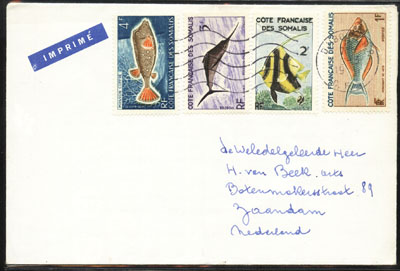 IMPRIMÉ
4F
RF
CÔTE FRANÇAISE
DES SOMALIS
5F
RF
CÔTE FRANÇAISE DES SOMALIS
CÔTE FRANÇAISE
DES SOMALIS
2F
RF
RF
CÔTE FRANÇAISE DES SOMALIS
de Weledelgeleerde Heer
H. van Beek, arts
Botenmakersstraat 89
Zaandam
Nederland